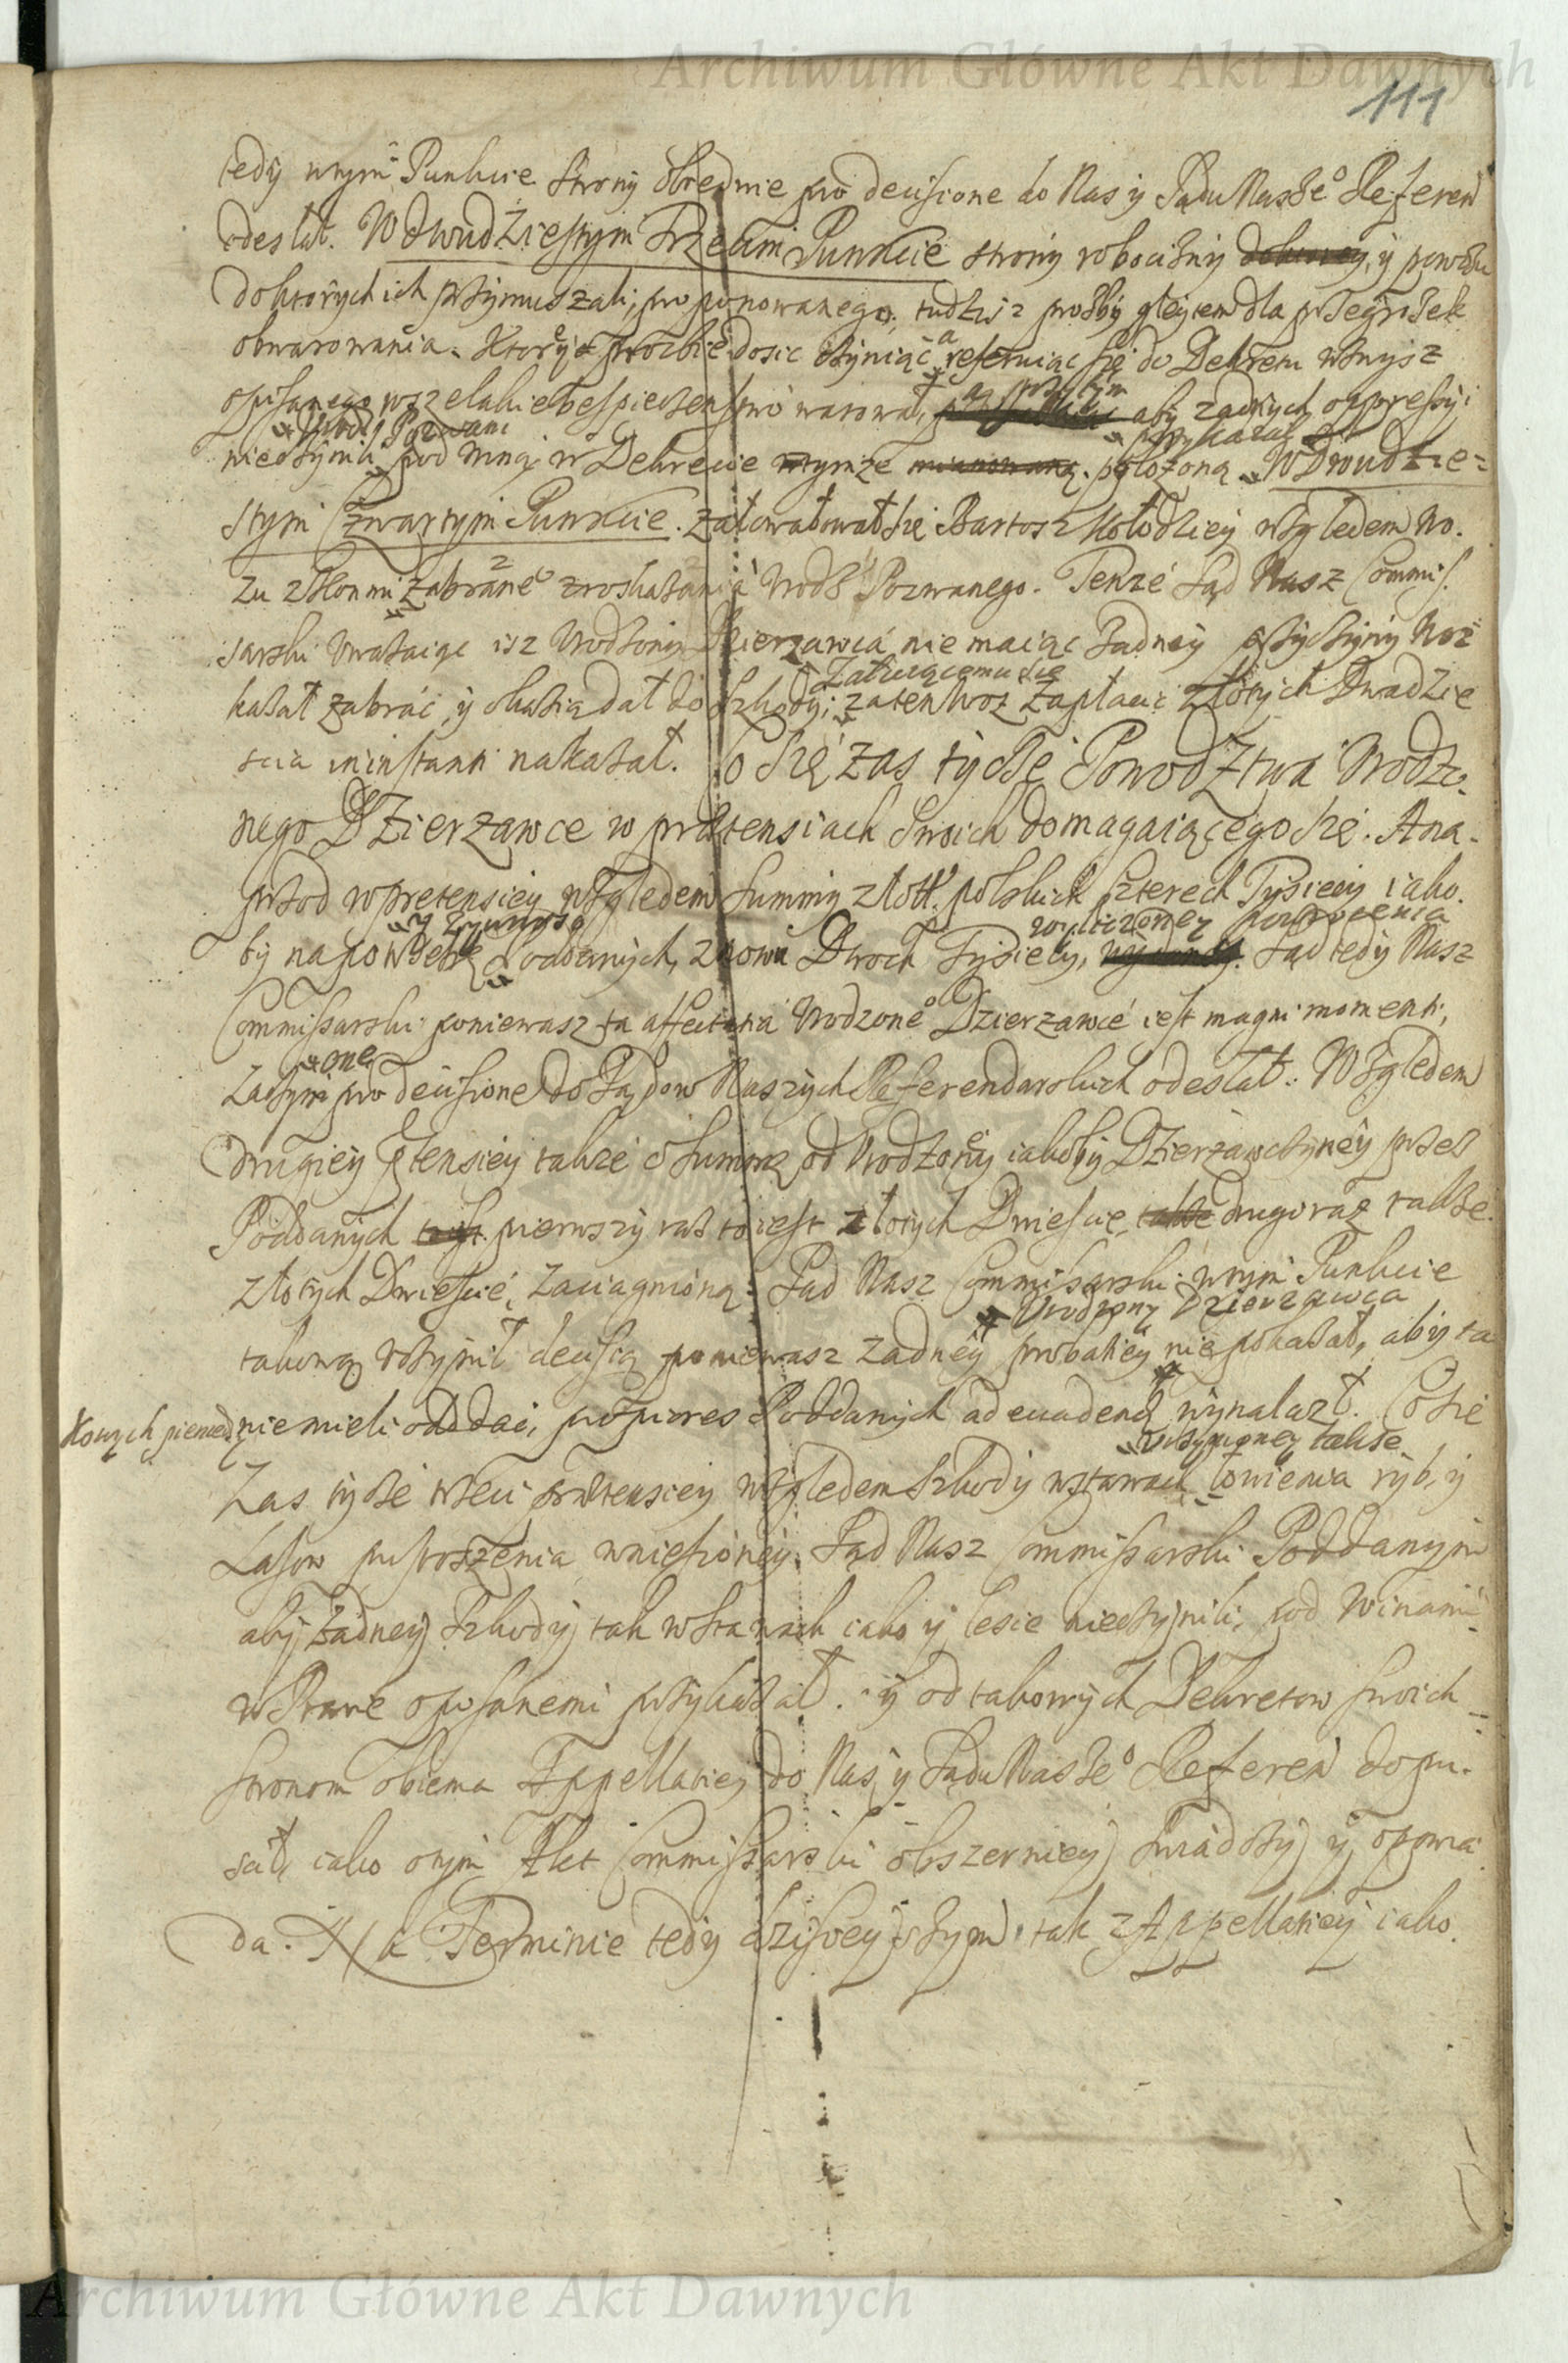 Archiwum Główne Akt Dawnych
111
tedy wtym Punkcie strony obiedwie pro decisione do Nas y Sądu Nasze° Referen
odesłał. W dwudziestym Trzecim Punkcie strony robocizny y powozu
do ktorych ich przymuszali, proponowanego, tudzisz prozby gleytem dla przegrożek
obwarowania. Ktorey prozbie dosic czyniąc a referuiąc się do Dekretu wtzwysz
opisanego wszelakie bespieczenstwo warował, a przytym aby zadnych oppressyi
Urodz Pozwani przykazał
nieczynili pod winą w Dekrecie tymze położoną. W Dwudzie=
stym Czwartym Punkcie. załowałował się Bartosz Kołodziey względem Wo.
zu z konmi zabrane° zroskazania Urodz Pozwanego. Tenze Sąd Nasz Commis.
sarski uwazaiąc isz Urodzony Dzierzawca nie maiąc zadney przyczyny Woz
Załuiącemu się
kazał zabrać, y okazią dał do szkody; zaten woz zapłacić złotych Dwadzie
scia in instanti nakazał. Co się zas tycze Powodztwa Urodzo.
nego Dzierzawce w prætensiach swoich domagaiącego się. A na.
przod w pretensiey względem summy złott. polskich szterech Tysięcy iako.
y zywnosc wyliczoney powrocenia
by na potrzebę Poddanych, znowu Dwoch Tysięcy, Sąd tedy Nasz
Commissarski poniewasz ta affectatia Urodzone° Dzierzawce iest magni momenti,
one
zaczym pro decisione do Sądow Naszych Referendarskich odesłał. Względem
drugiey ptensiey takze o summę od Urodzoney iakoby Dzierzawczyney przes
Poddanych pierwszy ras to iest złotych Dwiescie, drugi raz takze
złotych Dwiescie, zaciągnioną. Sąd Nasz Commissarski wtym Punkcie
Urodzony Dzierzawca
takową uczynił decisią poniewasz zadney probatiey nie pokazał, aby ta
kowych pieniedzy niemieli oddać, propiores Poddanych ad euadend wynalazł. Co się
uczynioney takze
zas tycze trzeci prætensiey względem szkody wstawach łowienia ryb, y
Lasow pustoszenia wniesioney. Sąd Nasz Commissarski Poddanym
aby zadney szkody tak wstawach iako y lesie nieczynili, pod winami
w Prawie opisanemi przykazał. y od takowych Dekretow swoich
stronom obiema Appellatiey do Nas y Sądu Nasze° Referen dopu.
scił, iako o tym Akt Commissarski obszerniey swiadczy y opowia
da. Na Terminie tedy dzisieyszym, tak z Appellatiey iako.
Archiwum Główne Akt Dawnych